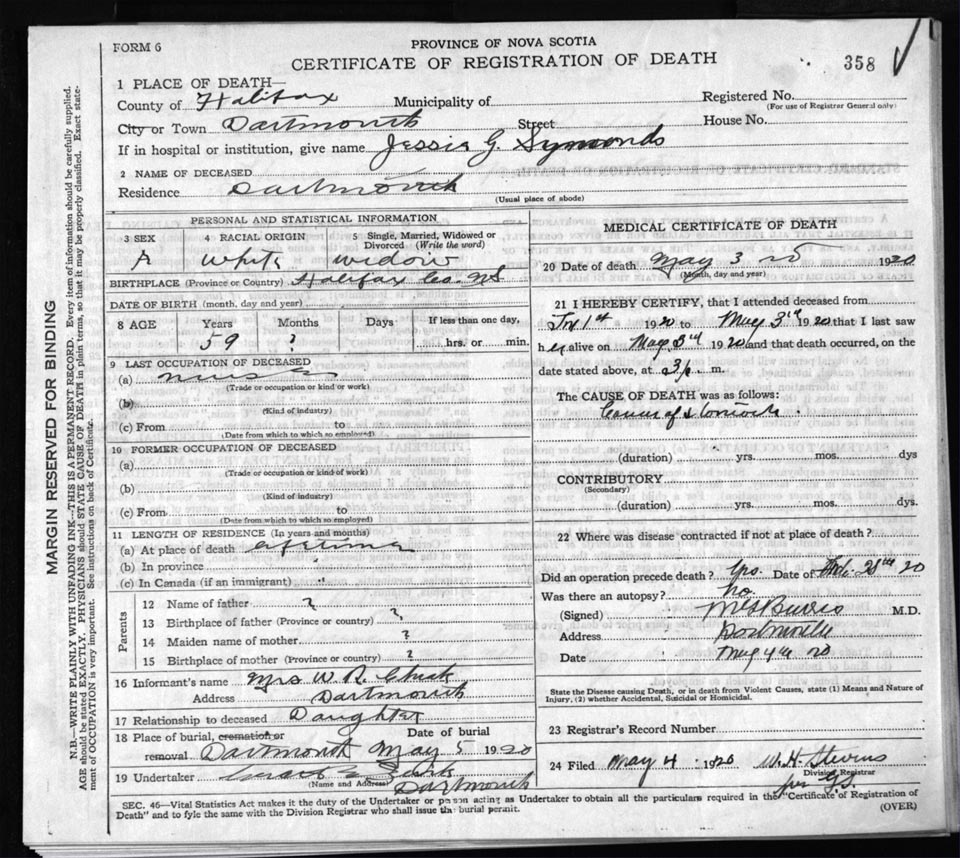 FORM 6
PROVINCE OF NOVA SCOTIA
CERTIFICATE OF REGISTRATION OF DEATH
358
1 PLACE OF DEATH—
County of Halifax Municipality of Registered No.
(For use of Registrar General only)
City or Town Dartmouth Street House No.
If in hospital or institution, give name Jessie G. Symonds
2 NAME OF DECEASED
Residence Dartmouth
(Usual place of abode)
PERSONAL AND STATISTICAL INFORMATION
3 SEX 4 RACIAL ORIGIN 5 Single, Married, Widowed or Divorced (Write the word)
F white widow
BIRTHPLACE (Province or Country) Halifax Co. N.S
DATE OF BIRTH (month, day and year)
8 AGE Years Months Days If less than one day,
59 ? hrs. or min.
9 LAST OCCUPATION OF DECEASED
(a)
(Trade or occupation or kind or work)
(b)
(Kind of industry)
(c) From to
(Date from which to which so employed)
10 FORMER OCCUPATION OF DECEASED
(a)
(Trade or occupation or kind of work)
(b)
(Kind of industry)
(c) From to
(Date from which to which so employed)
11 LENGTH OF RESIDENCE (In years and months)
(a) At place of death lifetime
(b) In province "
(c) In Canada (if an immigrant) "
Parents
12 Name of father ?
13 Birthplace of father (Province or country) ?
14 Maiden name of mother ?
15 Birthplace of mother (Province or country) ?
16 Informant's name Mrs W. R.
Address Dartmouth
17 Relationship to deceased Daughter
18 Place of burial, cremation or removal Date of burial
Dartmouth May 5 1920
19 Undertaker
(Name and Address) Dartmouth
MEDICAL CERTIFICATE OF DEATH
20 Date of death May 3 20 1920
(Month, day and year)
21 I HEREBY CERTIFY, that I attended deceased from
1st 1920 to May 3rd 1920 that I last saw
her alive on May 3rd 1920 and that death occurred, on the
date stated above, at 3 p. m.
The CAUSE OF DEATH was as follows:
Cancer of stomach.
(duration) yrs. mos. dys
CONTRIBUTORY
(Secondary)
(duration) yrs. mos. dys.
22 Where was disease contracted if not at place of death?
Did an operation precede death? Yes. Date of Feb. 28th 20
Was there an autopsy? no.
(Signed) M.D.
Address Dartmouth
Date May 4th 20
State the Disease causing Death, or in death from Violent Causes, state (1) Means and Nature of
Injury, (2) whether Accidental, Suicidal or Homicidal.
23 Registrar's Record Number
24 Filed May 4 1920 W. H. Stevens
Division Registrar
per G.S.
SEC. 46—Vital Statistics Act makes it the duty of the Undertaker or person acting as Undertaker to obtain all the particulars required in the "Certificate of Registration of
Death" and to fyle the same with the Division Registrar who shall issue the burial permit. (OVER)
MARGIN RESERVED FOR BINDING
N.B.—WRITE PLAINLY WITH UNFADING INK—THIS IS A PERMANENT RECORD. Every item of information should be carefully supplied.
AGE should be stated EXACTLY. PHYSICIANS should STATE CAUSE OF DEATH in plain terms, so that it may be properly classified. Exact state-
ment of OCCUPATION is very important. See instructions on back of Certificate.